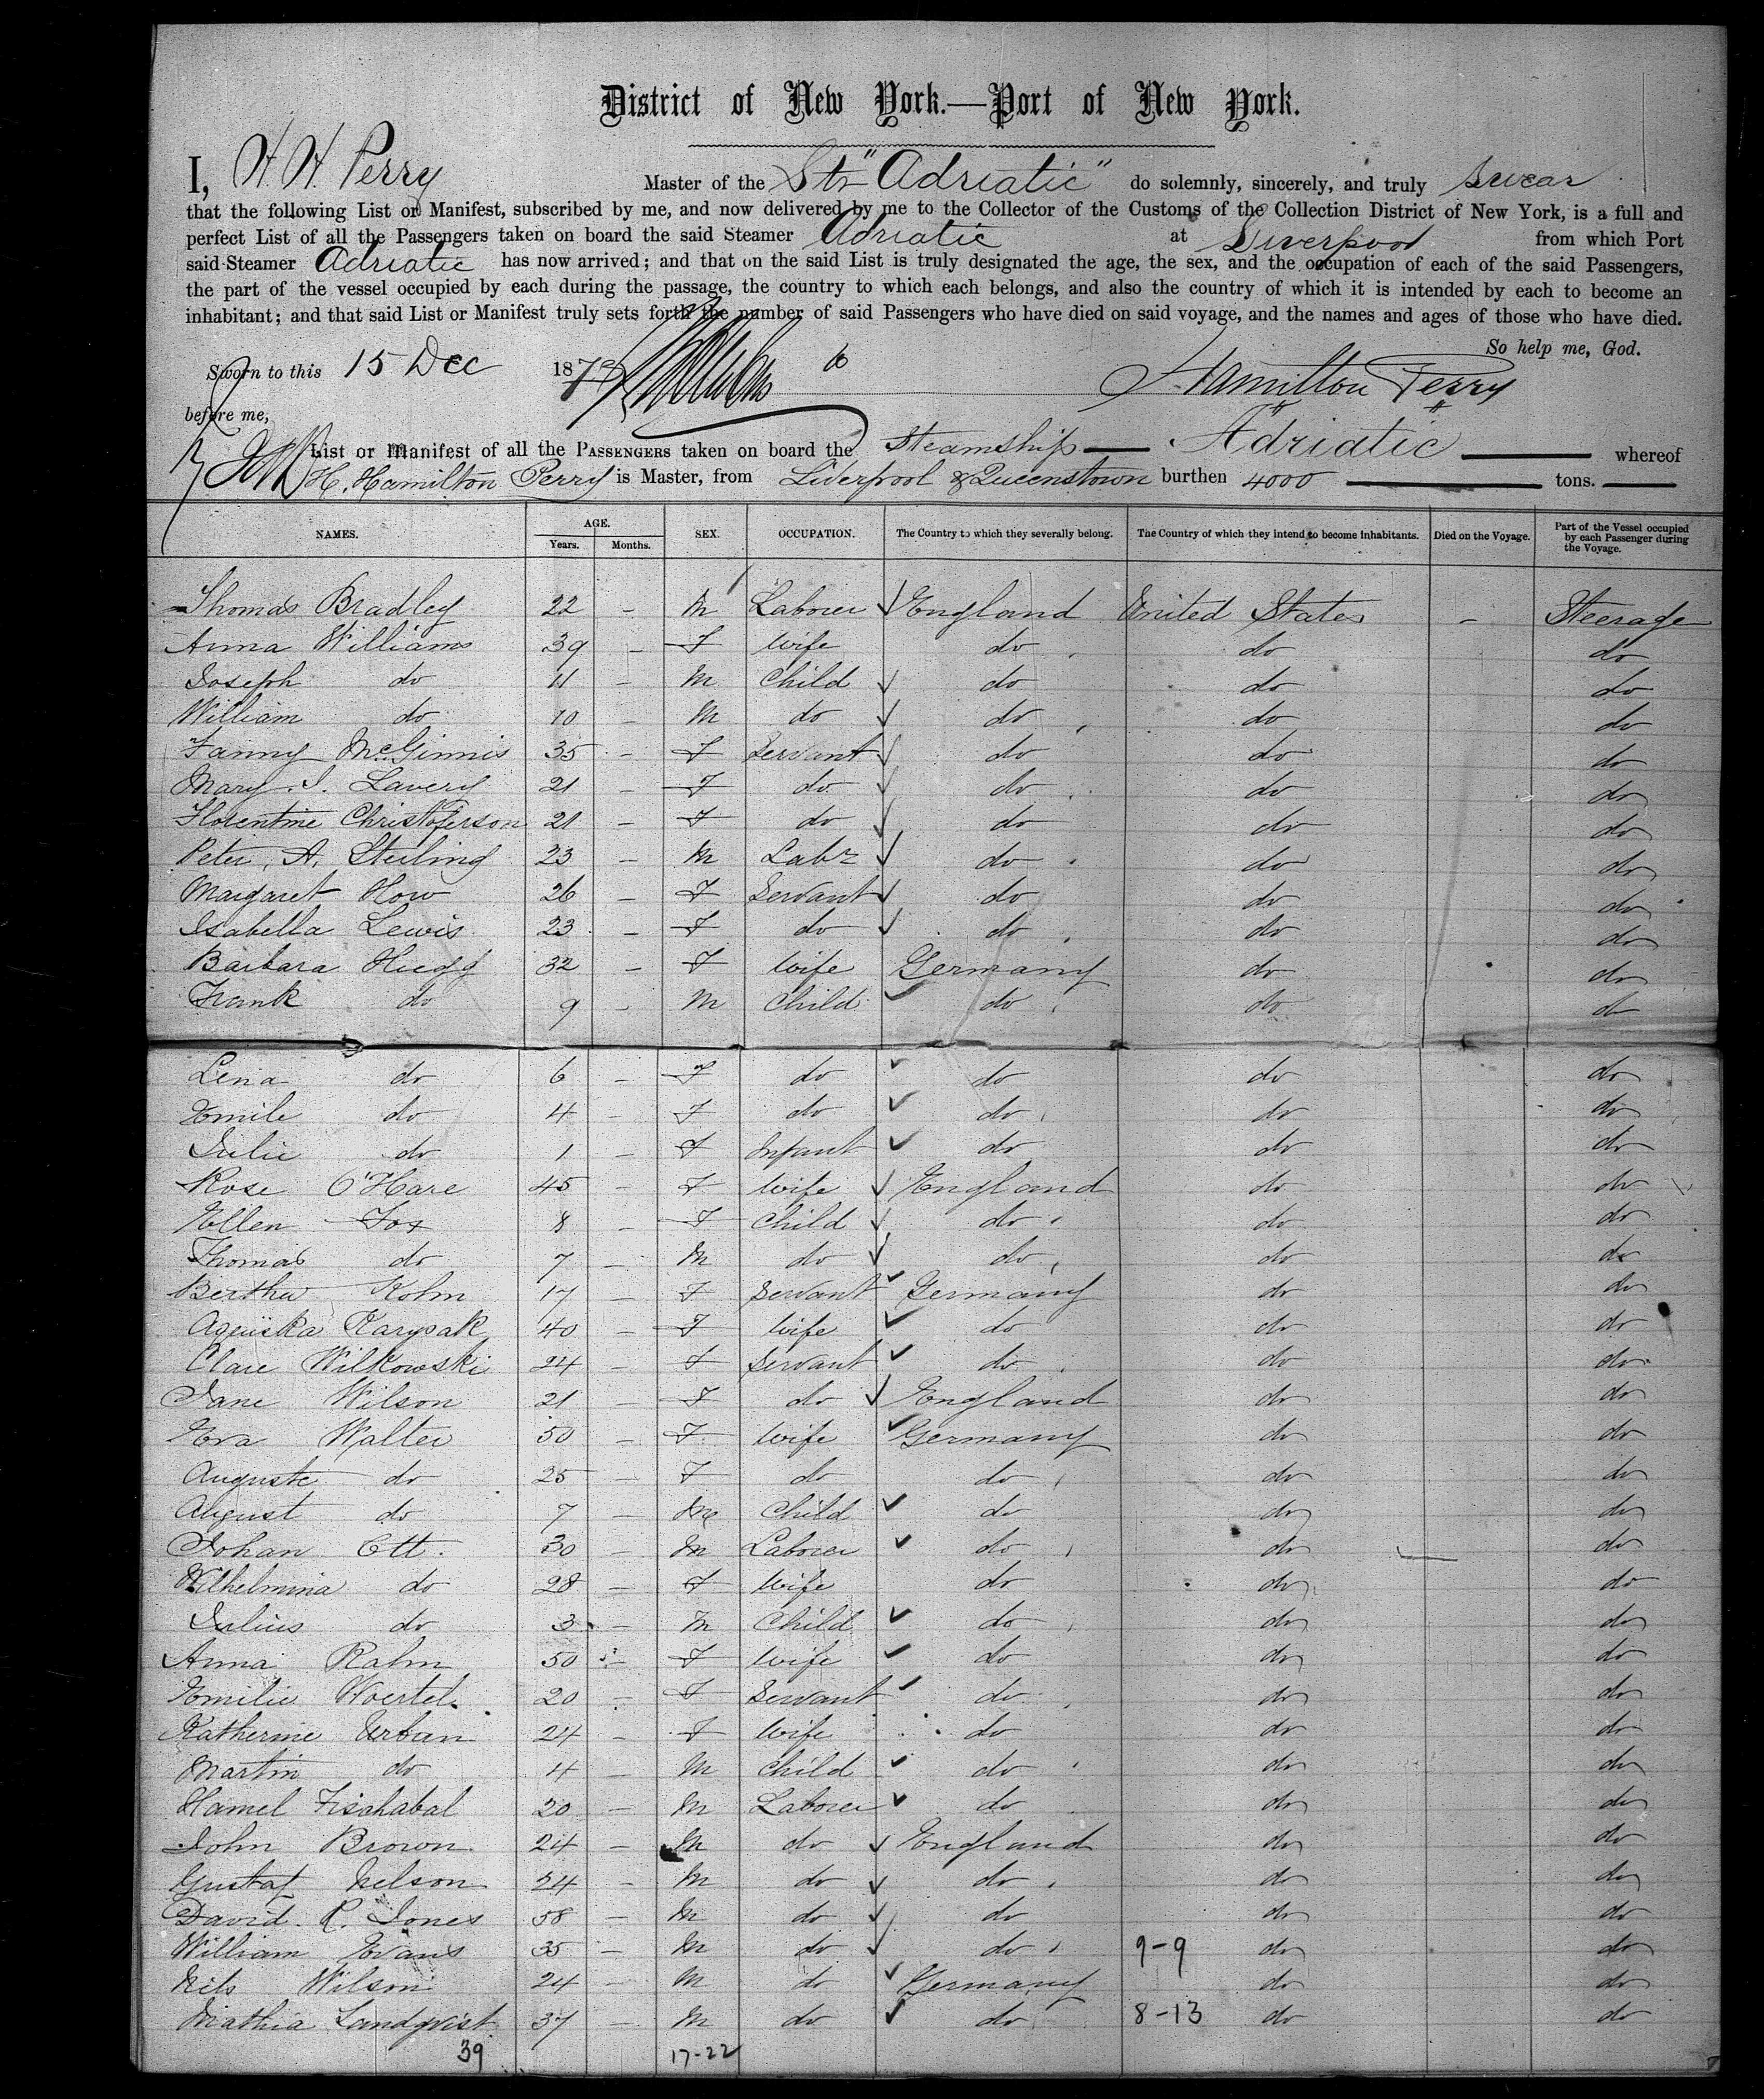 District of New York.—Port of New York.
I, H. H. Perry Master of the Str "Adriatic" do solemnly, sincerely, and truly swear
that the following List or Manifest, subscribed by me, and now delivered by me to the Collector of the Customs of the Collection District of New York, is a full and
perfect List of all the Passengers taken on board the said Steamer Adriatic at Liverpool from which Port
said Steamer Adriatic has now arrived; and that on the said List is truly designated the age, the sex, and the occupation of each of the said Passengers,
the part of the vessel occupied by each during the passage, the country to which each belongs, and also the country of which it is intended by each to become an
inhabitant; and that said List or Manifest truly sets forth the number of said Passengers who have died on said voyage, and the names and ages of those who have died.
So help me, God.
Sworn to this 15 Dec 1873 Hamilton Perry
before me,
List or Manifest of all the PASSENGERS taken on board the Steamship Adriatic whereof
H. Hamilton Perry is Master, from Liverpool & Queenstown burthen 4000 tons.
NAMES. AGE. Years. Months. SEX. OCCUPATION. The Country to which they severally belong. The Country of which they intend to become inhabitants. Died on the Voyage. Part of the Vessel occupied by each Passenger during the Voyage.
Thomas Bradley 22 - M Laborer England United States - Steerage
Anna Williams 39 - F Wife do do do
Joseph do 11 - M Child do do do
William do 10 - M do do do do
Fanny McGinnis 35 - F Servant do do do
Mary J. Lavery 21 - F do do do do
Florentine Christoferson 21 - F do do do do
Peter A. Sterling 23 - M Labr do do do
Margaret How 26 - F Servant do do do
Isabella Lewis 23 - F do do do do
Barbara Huegg 32 - F Wife Germany do do
Frank do 9 - M Child do do do
Lena do 6 - F do do do do
Emile do 4 - F do do do do
Julie do 1 - F Infant do do do
Rose O'Hare 45 - F Wife England do do
Ellen Fox 8 - F Child do do do
Thomas do 7 - M do do do do
Bertha Kohn 17 - F Servant Germany do do
Agnieska Karysak 40 - F Wife do do do
Clare Wilkowski 24 - F Servant do do do
Jane Wilson 21 - F do England do do
Eva Walter 50 - F Wife Germany do do
Auguste do 25 - F do do do do
August do 7 - M Child do do do
Johan Ott. 30 - M Laborer do do do
Wilhelmina do 28 - F Wife do do do
Julius do 3 - M Child do do do
Anna Rahn 50 - F Wife do do do
Emilie Woertel 20 - F Servant do do do
Katherine Urban 24 - F Wife do do do
Martin do 4 - M Child do do do
Hamel Fischabal 20 - M Laborer do do do
John Brown 24 - M do England do do
Gustaf Nelson 24 - M do do do do
David R. Jones 58 - M do do do do
William Evans 35 - M do do 9-9 do do
Nils Wilson 24 - M do Germany do do
Mathia Landqvist 37 - M do do 8-13 do do
39 17-22